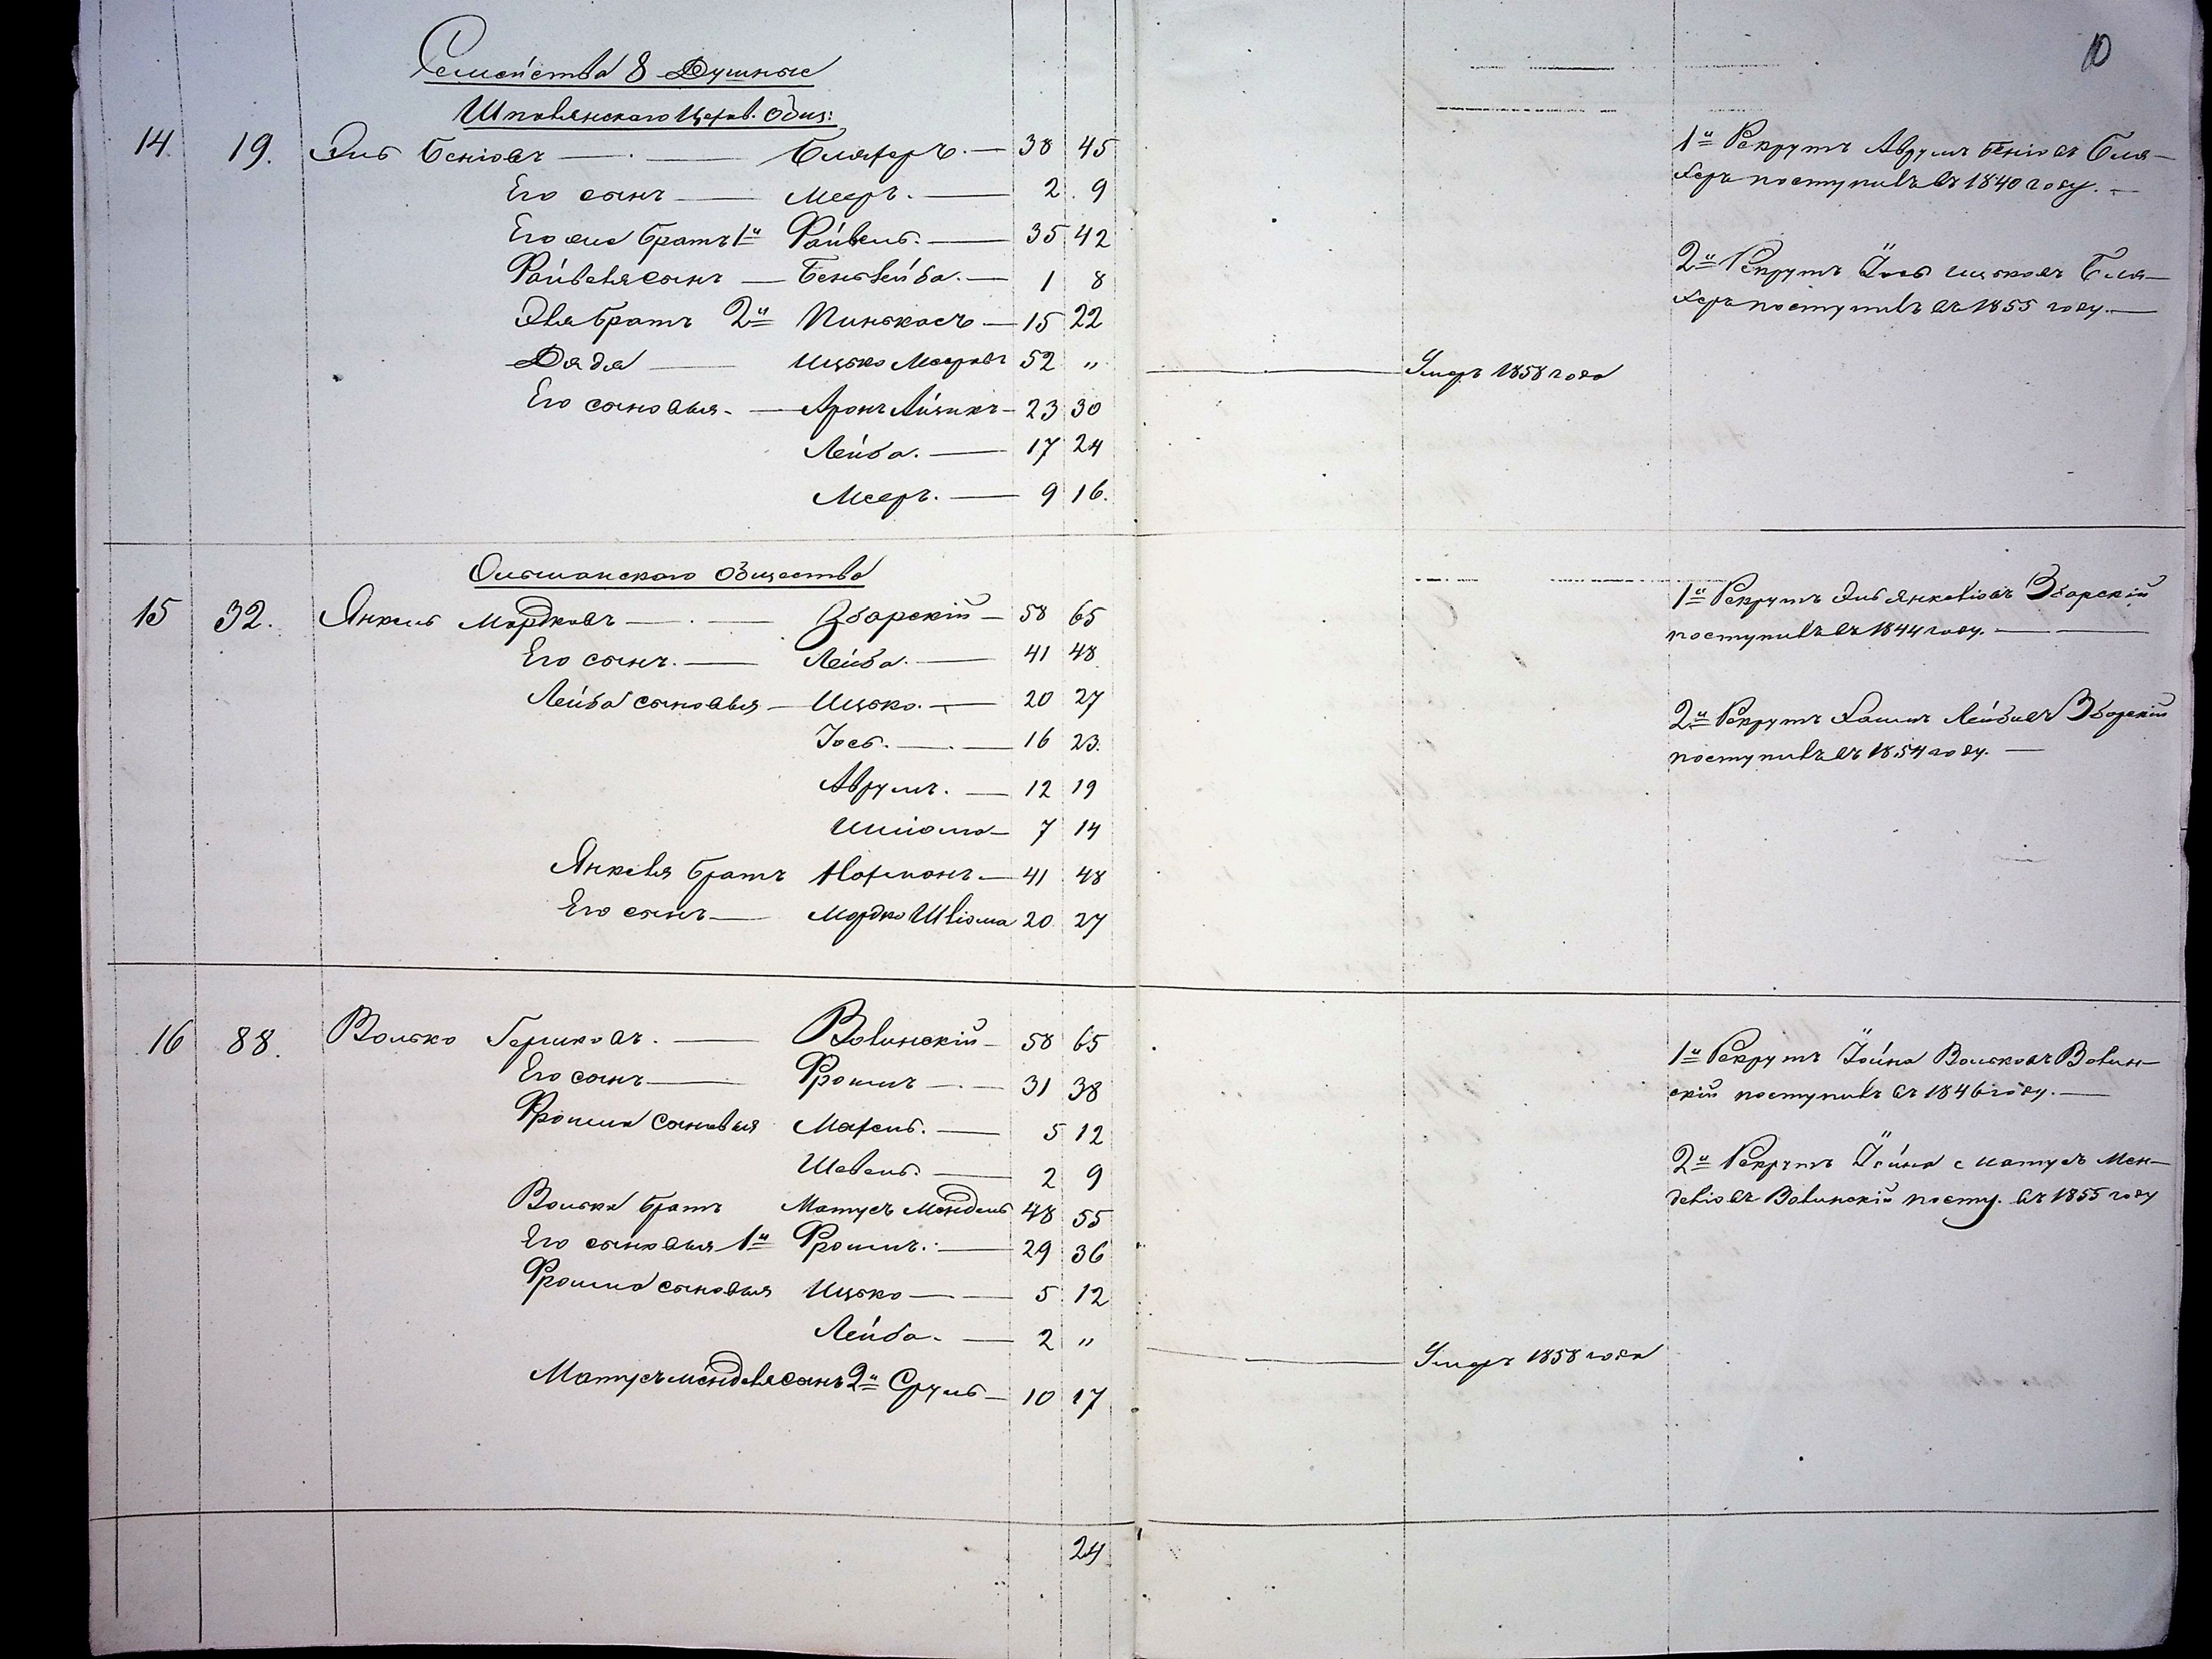 10
Семейства 8 Душные
Шполянскаго Церков. Общ:
14. 19. Эль Беніовъ — Бляхеръ. — 38 45
Его сынъ — Мееръ. — 2. 9
Его же братъ 1й Файвель. — 35 42
Файвеля сынъ — Бенълейба. — 1 8
Эля братъ 2й Пинькасъ — 15 22
Дядя — Ицько Мееровъ 52 „ — Умеръ 1858 года
Его сыновья — Аронъ Айзикъ — 23 30
Лейба. — 17 24
Мееръ. — 9 16.
1й Рекрутъ Аврумъ Беніовъ Бля-
херъ поступилъ въ 1840 году. —
2й Рекрутъ Іось Ицьковъ Бля-
херъ поступилъ въ 1855 году. —
Ольшанскаго Общества
15 32. Янкель Мордковъ — Зборскій — 58 65
Его сынъ. — Лейба. — 41 48
Лейба сыновья — Ицько. — 20 27
Іось. — 16 23.
Аврумъ. — 12 19
Шліома — 7 14
Янкеля братъ Нахманъ. — 41 48
Его сынъ — Мордко Шліома 20 27
1й Рекрутъ Эль Янкеліовъ Зборскій
поступилъ въ 1844 году. —
2й Рекрутъ Хаимъ Лейбовъ Зборскій
поступилъ въ 1854 году. —
16 88. Волько Гершковъ. — Волинскій — 58 65
Его сынъ — Фроимъ — 31 38
Фроима сыновья Махель. — 5 12
Шевель. — 2 9
Волька братъ Матусъ Мендель 48 55
Его сыновья 1й Фроимъ. — 29 36
Фроима сыновья Ицько — 5 12
Лейба. — 2 „ — Умеръ 1858 года
Матусъ Менделя сынъ 2й Сруль — 10 17
1й Рекрутъ Іойна Вольковъ Волин-
скій поступилъ въ 1846 году. —
2й Рекрутъ Іойна с Матусъ Мен-
деліовъ Волинскій посту. въ 1855 году
24